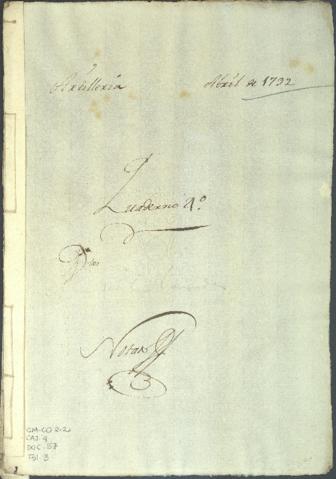 Artilleria Abril de 1792
Quaderno 4º
Dias
Notas
GM-CO 2-2
CAJ. 4
DOC. 57
FBI. 3
1